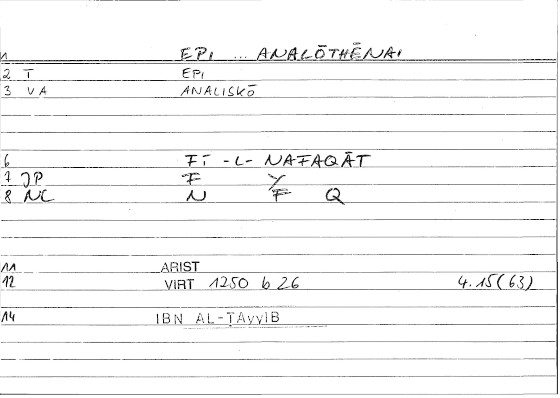 1 EPI ... ANALŌTHĒNAI
2 T EPI
3 VA ANALISKŌ
6 FĪ -L- NAFAQĀT
7 JP F Y
8 NC N F Q
11 ARIST
12 VIRT 1250 b 26 4.15(63)
14 IBN AL-ṬAyyIB